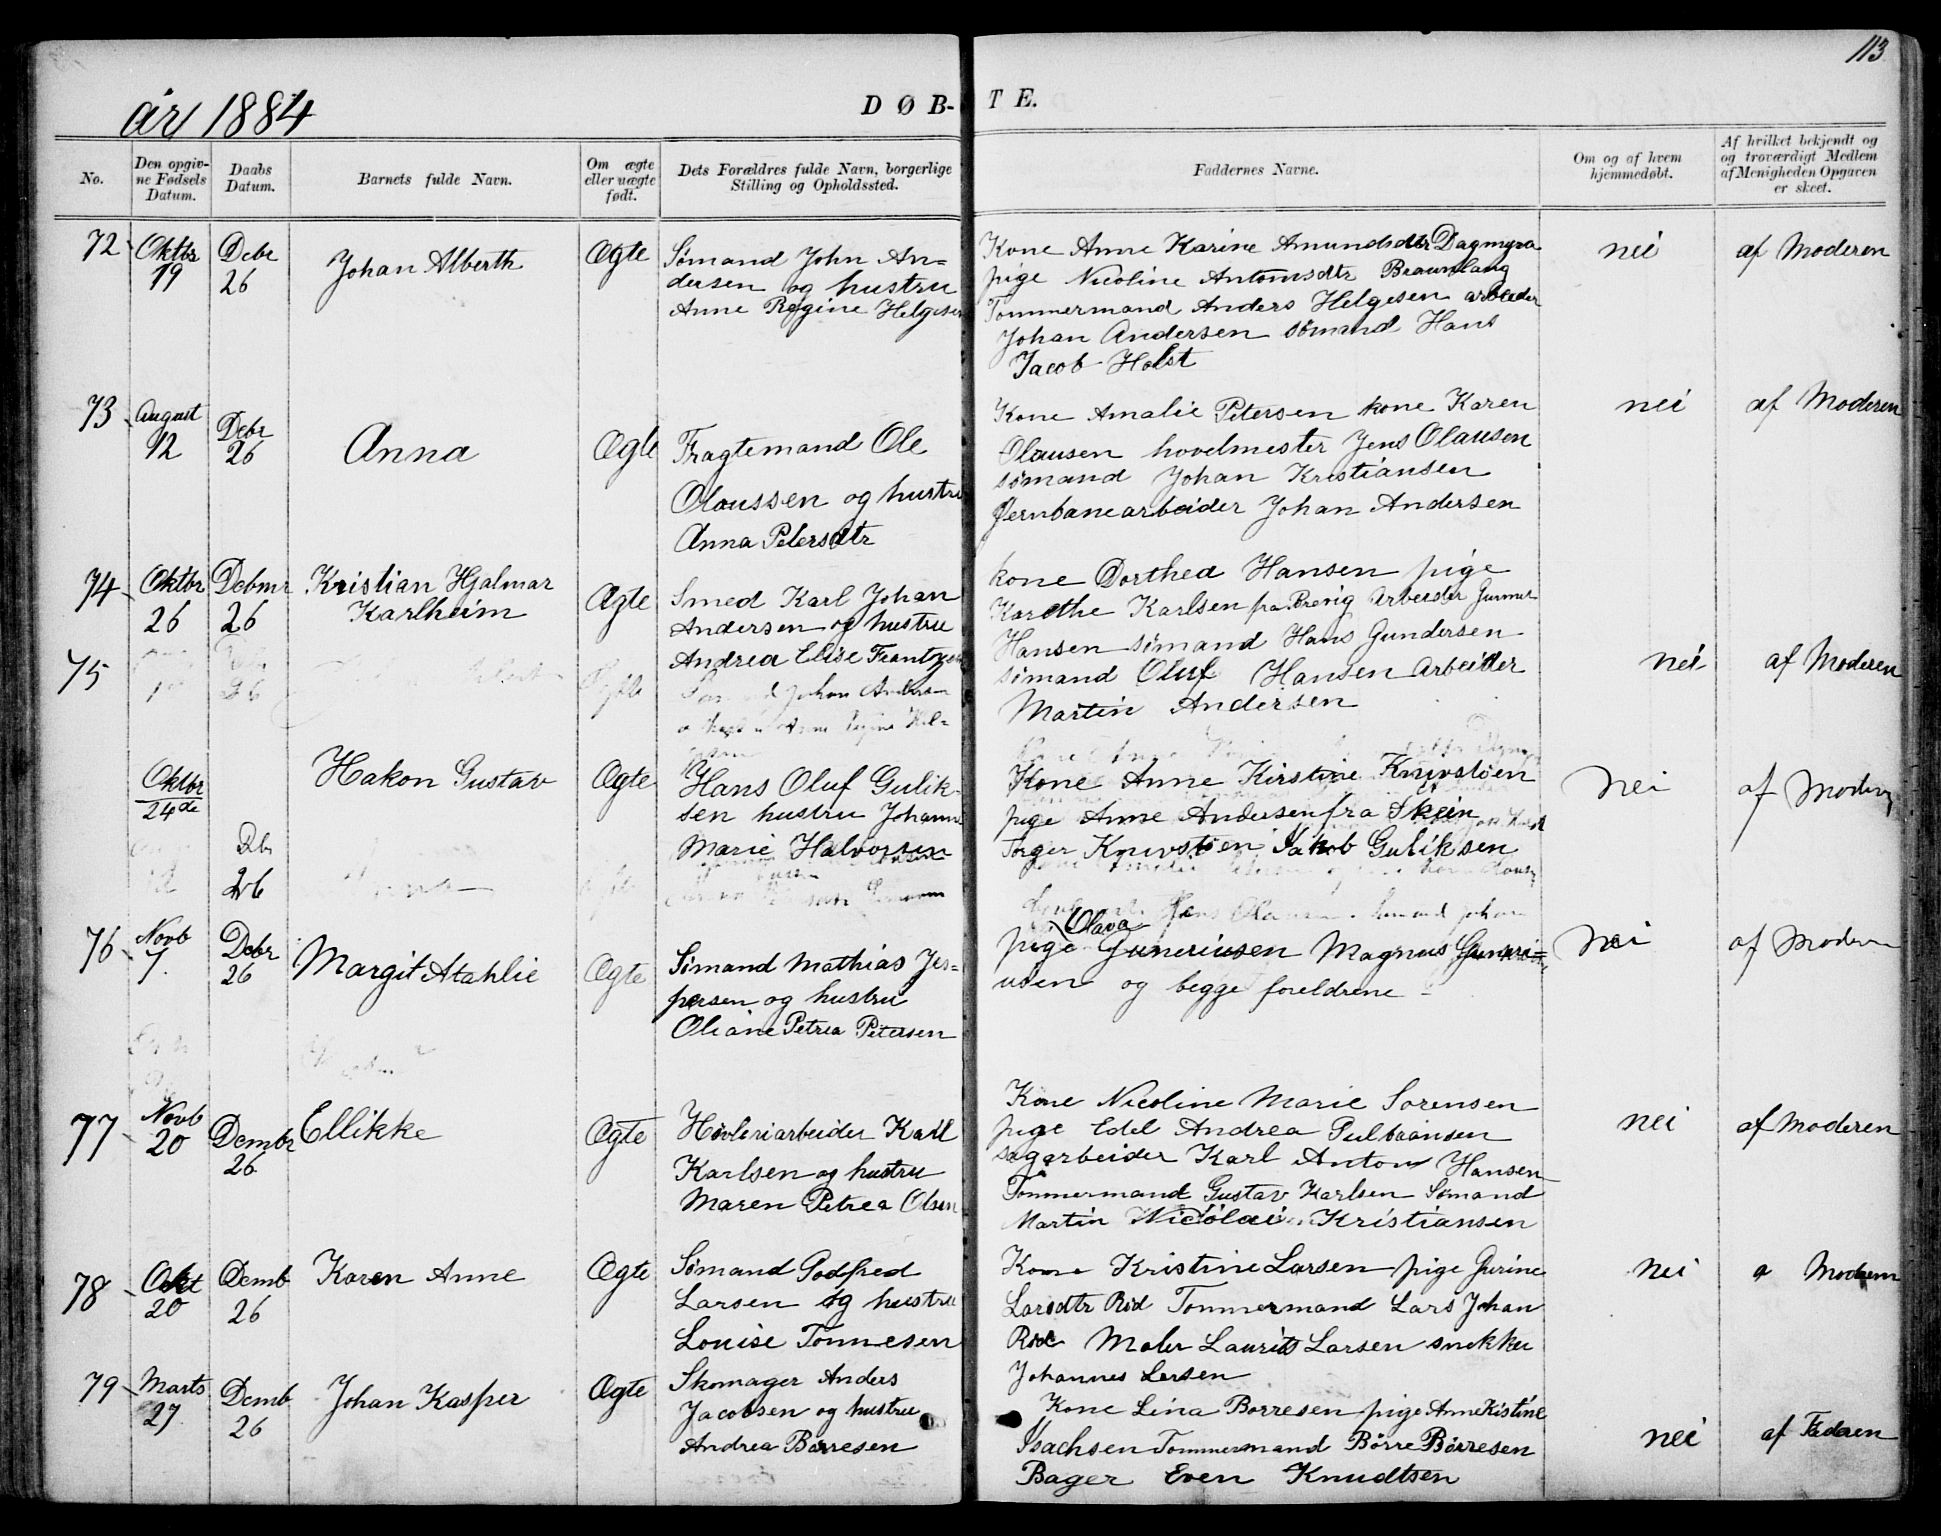 113
år 1884
DØB-TE.
No.
Den opgiv-
ne Fødsels
Datum.
Daabs
Datum.
Barnets fulde Navn.
Om ægte
eller uægte
født.
Dets Forældres fulde Navn, borgerlige
Stilling og Opholdssted.
Faddernes Navne.
Om og af hvem
hjemmedøbt.
Af hvilket bekjendt og
og troværdigt Medlem
af Menigheden Opgaven
er skeet.
72
Oktbr
19
Debr
26
Johan Alberth
Ægte
Sømand John An-
dersen og hustru
Anne Regine Helgesen
Kone Anne Karine Amundsdtr Dagmyra
pige Nicoline Antomsdtr Braunlang
Tommermand Anders Helgesen arbeider
Johan Andersen sømand Hans
Jacob Holst
nei
af Moderen
73
August
12
Debr
26
Anna
Ægte
Fragtemand Ole
Olaussen og hustru
Anna Petersdtr
Kone Amalie Petersen kone Karen
Olausen hovelmester Jens Olausen
sømand Johan Kristiansen
Jernbanearbeider Johan Andersen
nei
af Moderen
74
Oktbr
26
Debmr
26
Kristian Hjalmar
Karlheim
Ægte
Smed Karl Johan
Andersen og hustru
Andrea Elise Frantzen
kone Dorthea Hansen pige
Karethe Karlsen fra Brevig Arbeider Gunner
Hansen sømand Hans Gundersen
sømand Oluf Hansen Arbeider
Martin Andersen
nei
af Moderen
75
26
Johan Andersen
Anne Regine Hel-
Oktbr
24de
Db
26
Hakon Gustav
Ægte
Hans Oluf Gulik-
sen hustru Johanne
Marie Halvorsen
Kone Anne Kirstine Knivstøen
pige Anne Andersen fra Skein
Torger Knivstøen Jakob Guliksen
nei
af Moderen
76
Novb
7
Debr
26
Margit Atahlie
Ægte
Sømand Mathias Jes-
persen og hustru
Oliane Petrea Petersen
Olava
pige Guneriusen Magnus Guneri-
usen og begge foreldrene
Nei
af Moderen
77
Novb
20
Dembr
26
Ellikke
Ægte
Høvleriarbeider Karl
Karlsen og hustru
Maren Petrea Olsen
Kone Nicoline Marie Sorensen
pige Edel Andrea Pulbaansen
sagarbeider Karl Anton Hansen
Tommermand Gustav Karlsen Sømand
Martin Nicolai Kristiansen
nei
af Moderen
78
Okt
20
Demb
26
Karen Anne
Ægte
Sømand Godfred
Larsen og hustru
Louise Tonnesen
Kone Kristine Larsen pige Gurine
Larsdtr Rød Tommermand Lars Johan
Rød Maler Laurits Larsen snekker
Johannes Larsen
nei
a Moderen
79
Marts
27
Demb
26
Johan Kasper
Ægte
Skomager Anders
Jacobsen og hustru
Andrea Børresen
Kone Lina Borresen pige Anne Kistine
Isachsen Tommermand Børre Børresen
Bager Even Knudtsen
nei
af Faderen